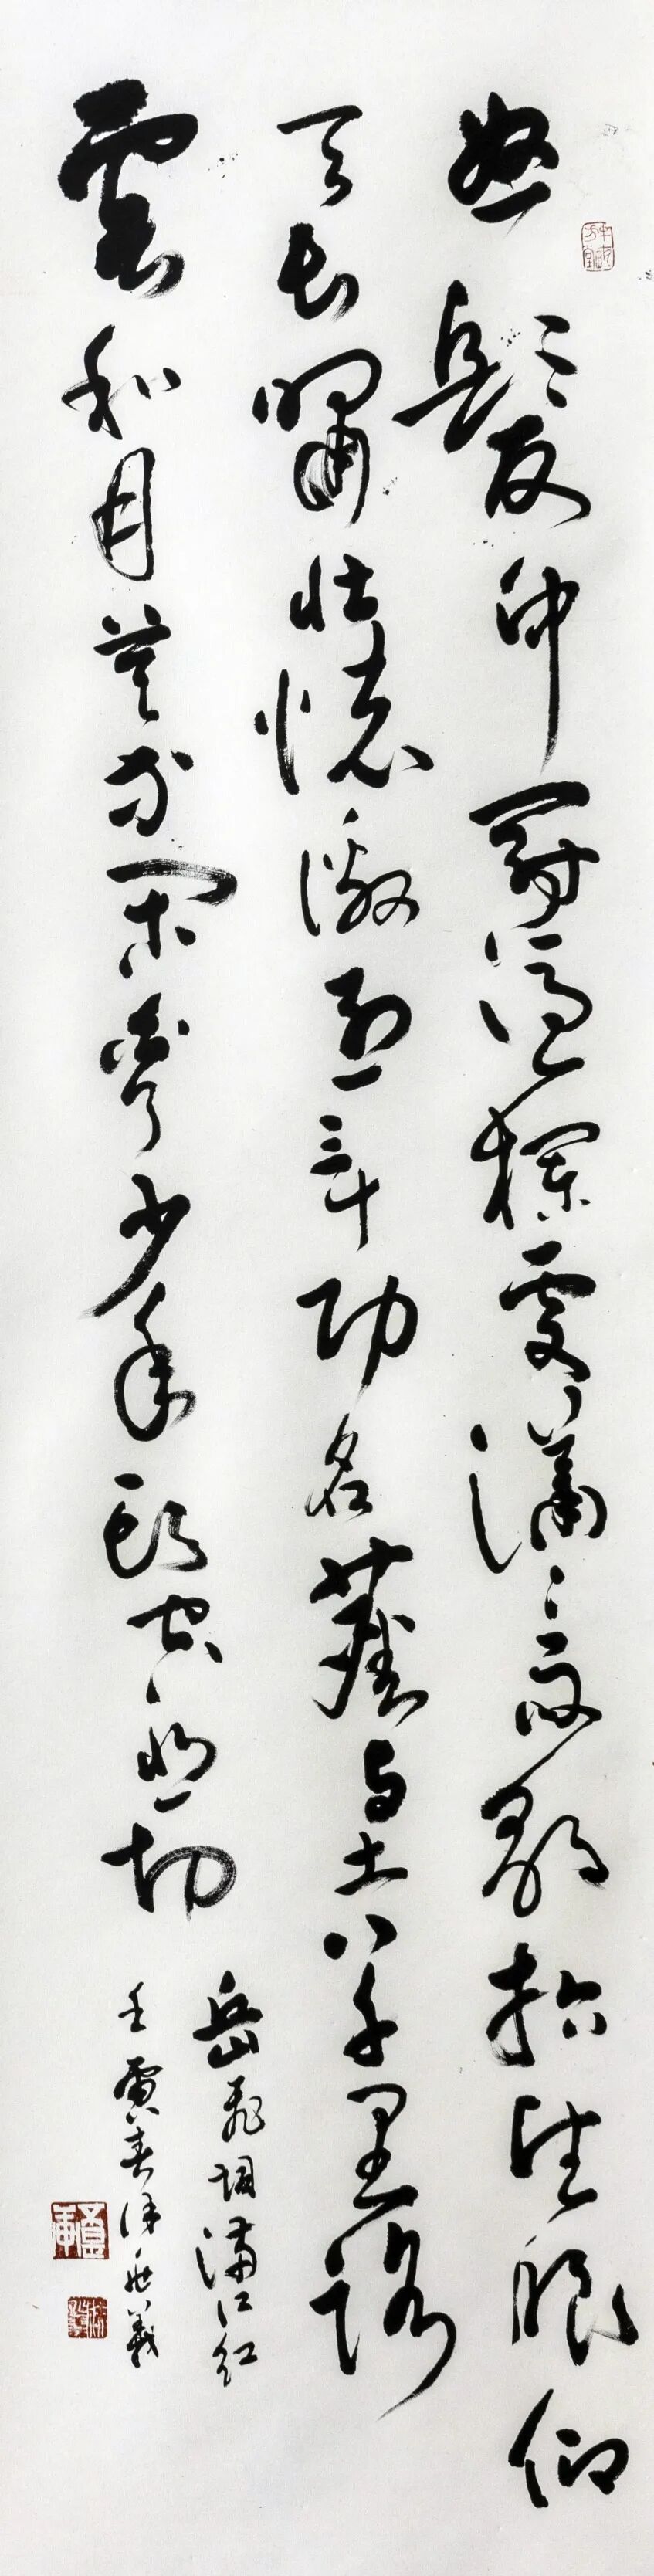 怒髮衝冠憑欄處瀟瀟雨歇抬望眼仰
天長嘯壯懷激烈三十功名塵與土八千里路
雲和月莫等閑白了少年頭空悲切
岳飛詞滿江紅
壬寅春